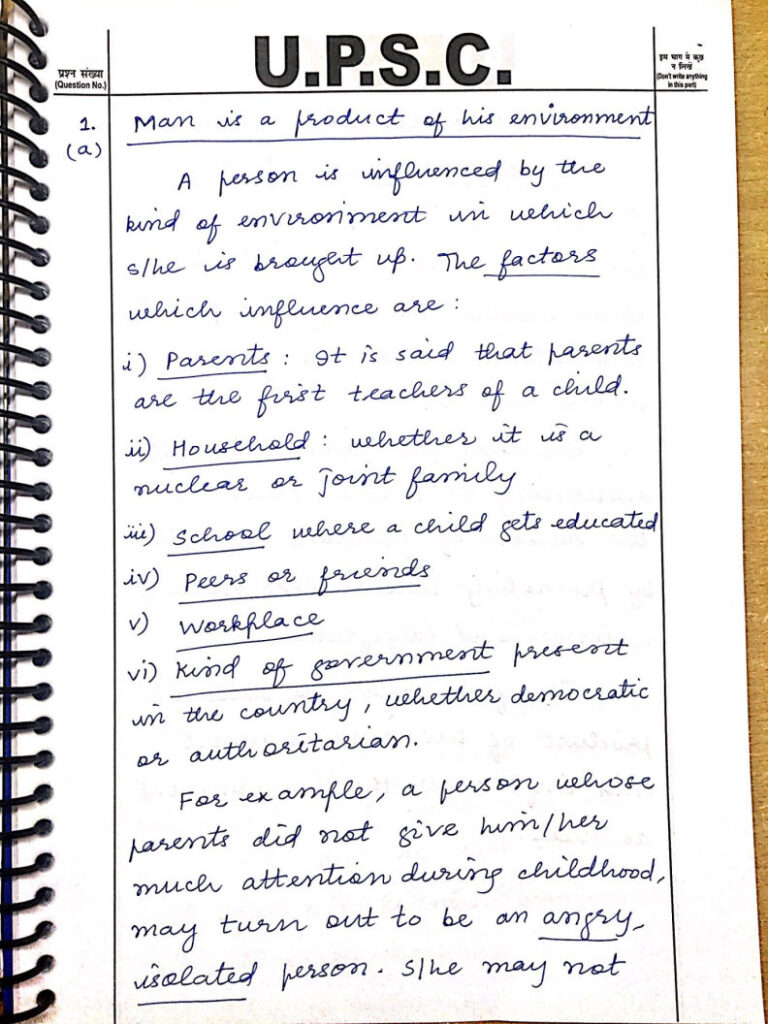 U.P.S.C.
प्रश्न संख्या
(Question No.)
इस भाग में कुछ
न लिखें
(Don't write anything
in this part)
1.
(a)
Man is a product of his environment
A person is influenced by the
kind of environment in which
s/he is brought up. The factors
which influence are :
i) Parents : It is said that parents
are the first teachers of a child.
ii) Household : whether it is a
nuclear or joint family
iii) School where a child gets educated
iv) Peers or friends
v) Workplace
vi) Kind of government present
in the country, whether democratic
or authoritarian.
For example, a person whose
parents did not give him/her
much attention during childhood,
may turn out to be an angry,
isolated person. S/he may not